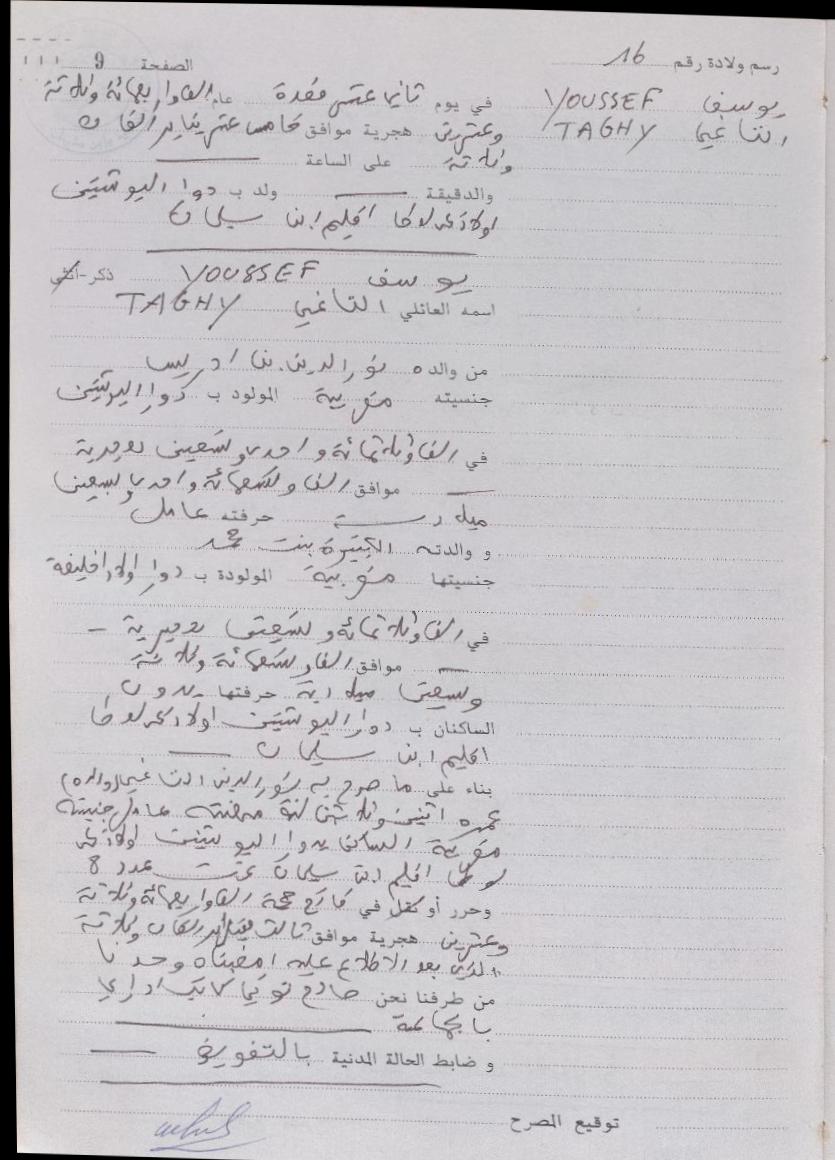 رسم ولادة رقم 16
الصفحة 9
يوسف YOUSSEF
التاغي TAGHY
في يوم ثاني عشر قعدة عام الف واربعمائة وثلاثة
وعشرين هجرية موافق خامس عشر يناير الفان
وثلاثة على الساعة
والدقيقة ولد ب دوار اليوشيين
اولاد اقليم ابن سليمان
يوسف YOUSSEF ذكر-أنثى
اسمه العائلي التاغي TAGHY
من والده نور الدين بن ادريس
جنسيته مغربية المولود ب دوار اليوشيين
في الف وثلاثمائة و احدى وتسعين هجرية
موافق الف وتسعمائة واحدى وسبعين
ميلادية حرفته عامل
و والدته الكبيرة بنت محمد
جنسيتها مغربية المولودة ب دوار اولاد اخليفة
في الف وثلاثمائة و هجرية
موافق الف وتسعمائة وثلاثة
وسبعين ميلادية حرفتها بدون
الساكنان ب دوار اليوشيين اولاد
اقليم ابن سليمان
بناء على ما صرح به نور الدين التاغي (والده)
عمره اثنين وثلاثين سنة مهنته عامل جنسيته
مغربية الساكن بدوار اليوشيين اولاد
اقليم ابن سليمان تحت عدد 8
وحرر أو نقل في فاتح حجة الف واربعمائة وثلاثة
وعشرين هجرية موافق ثالث فبراير الفان وثلاثة
الذي بعد الاطلاع عليه امضيناه وحدنا
من طرفنا نحن صالح كاتب اداري
بالجماعة
و ضابط الحالة المدنية بالتفويض
توقيع المصرح